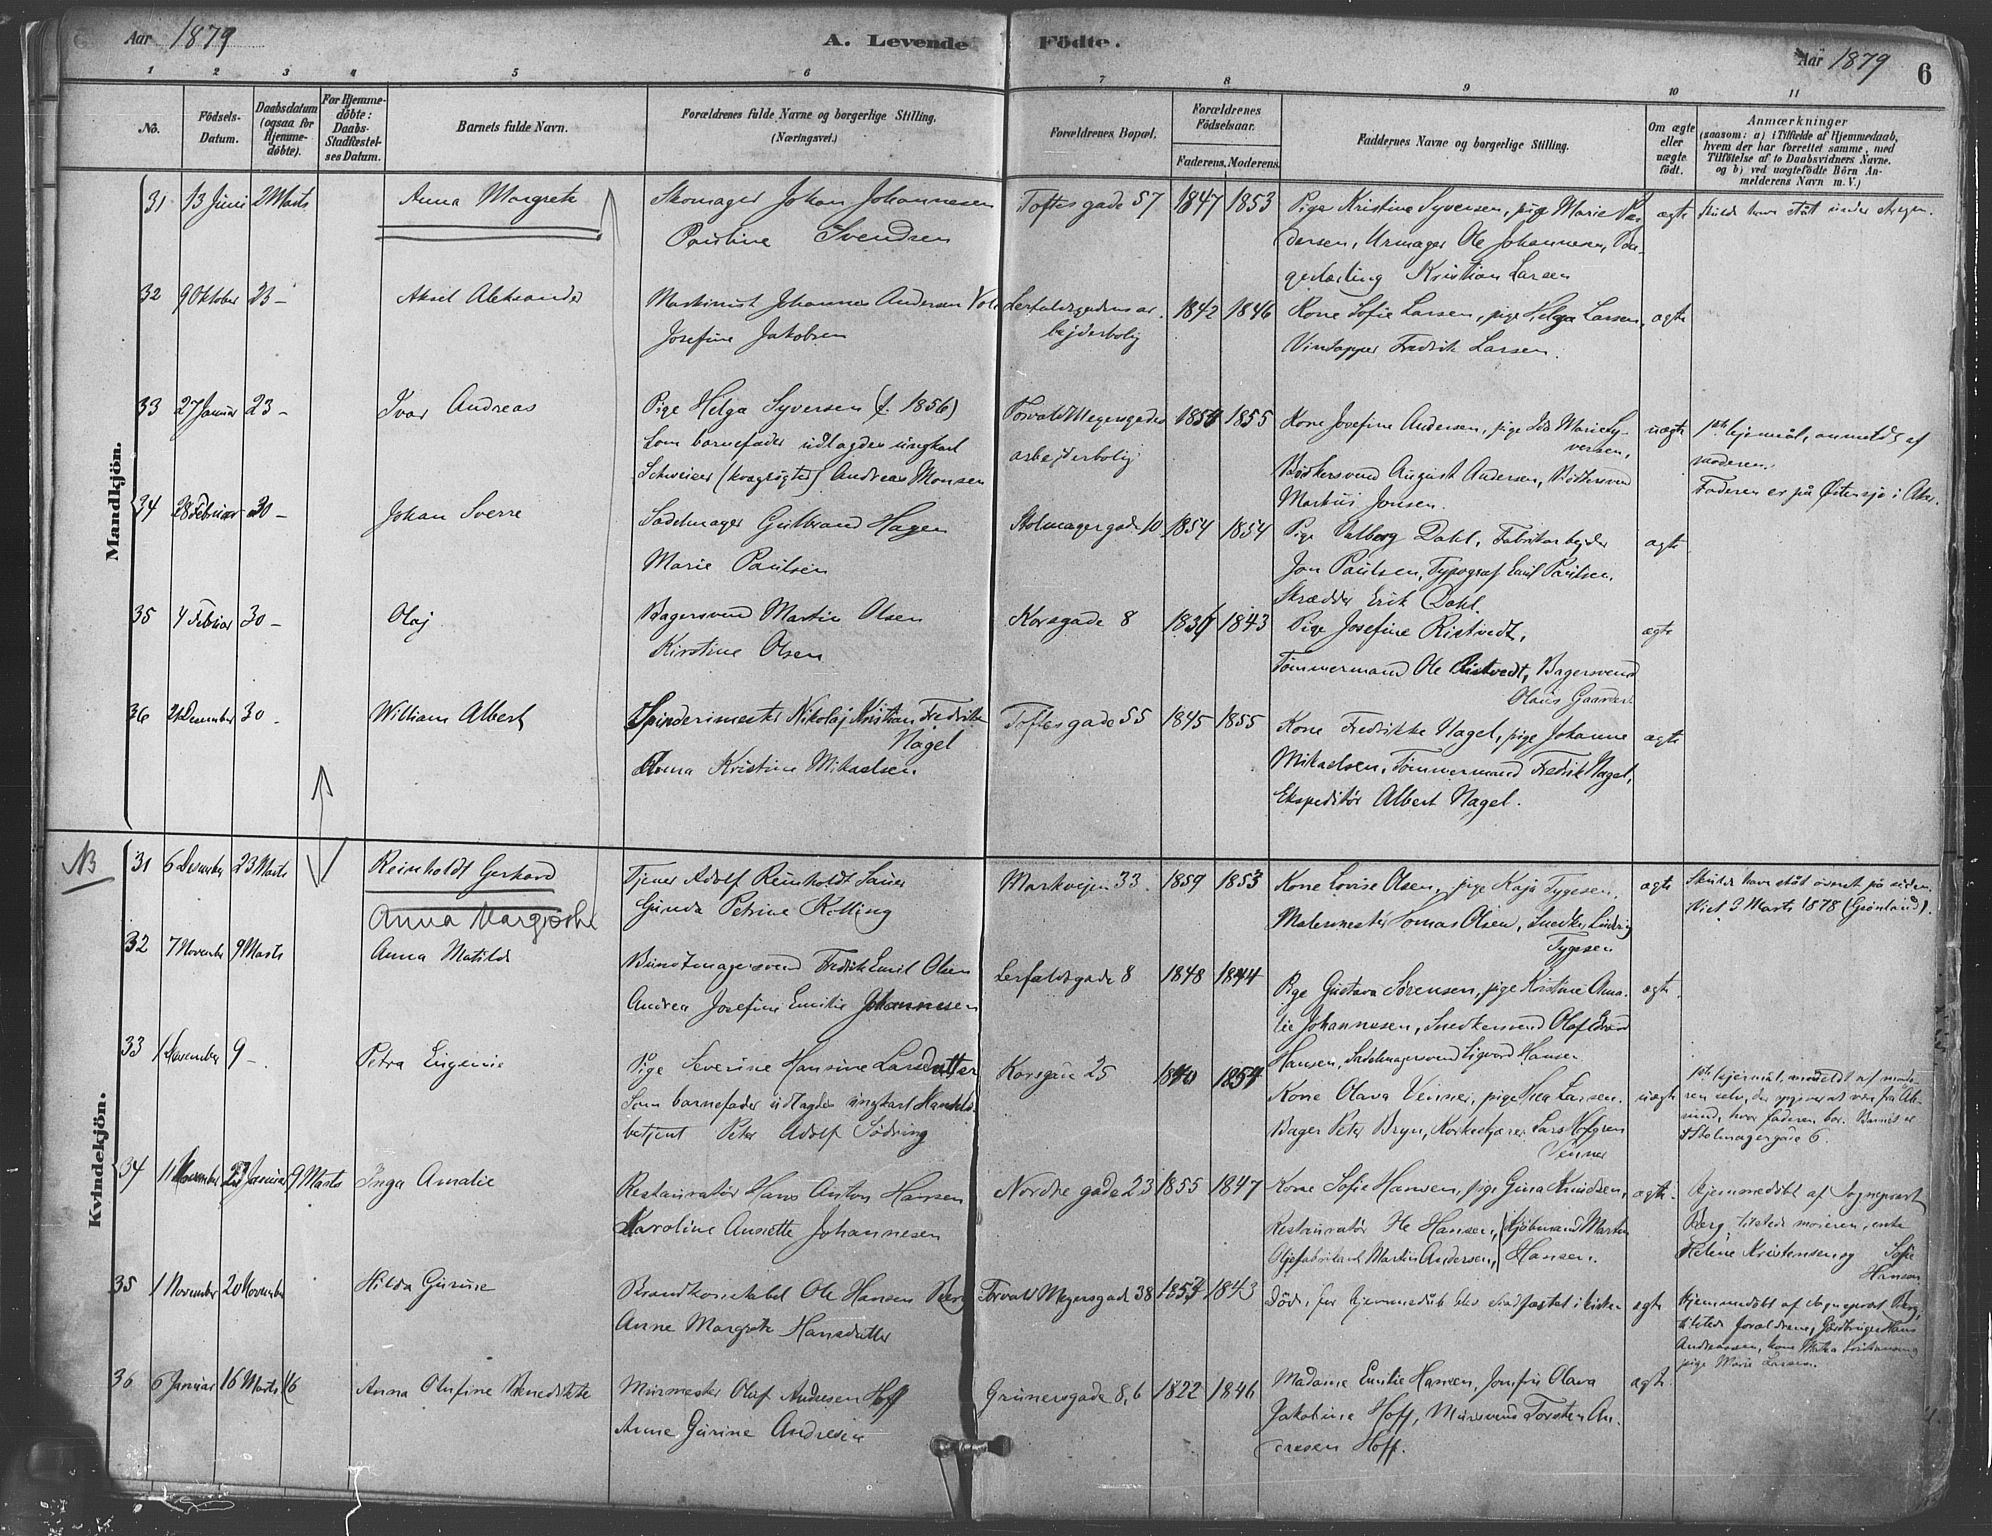 Aar 1879
A. Levende Fødte.
Aar 1879
6
1 2 3 4 5 6 7 8 9 10 11
No.
Födsels-Datum.
Daabsdatum (ogsaa for Hjemme-døbte).
For Hjemme-døbte: Daabs-Stadfæstel-ses Datum.
Barnets fulde Navn.
Forældrenes fulde Navne og borgerlige Stilling. (Næringsvei.)
Forældrenes Bopæl.
Forældrenes Fødselsaar.
Faderens. Moderens.
Faddernes Navne og borgerlige Stilling.
Om ægte eller uægte født.
Anmærkninger
(saasom: a) i Tilfælde af Hjemmedaab, hvem der har forrettet samme, med Tilføielse af to Daabsvidners Navne. og b) ved uægtefødte Børn An-melderens Navn m. V.)
Mandkjön.
31 13 Juni 2 Marts Anna Margrete Skomager Johan Johannesen Toftes gade 57 1847 1853 Pige Kristine Syversen, pige Marie Pe- ægte Skulde have ståt under stregen.
Pauline Svendsen dersen, Urmager Ole Johannesen,
Kristian Larsen
32 9 Oktober 23 – Aksel Aleksander Maskinist Johannes Andersen Lerfaldsgadens ar- 1842 1846 Kone Sofie Larsen, pige Helga Larsen, ægte
Josefine Jakobsen bejderbolig Vintapper Fredrik Larsen.
33 27 Januar 23 – Ivar Andreas Pige Helga Syversen (f. 1856) Torvald Meyersgades 1854 1855 Kone Josefine Andersen, pige Ida Marie Sy- uægte 1ste lejermål, anmeldt af
Som barnefader udlagdes ungkarl arbejderbolig versen, moderen.
Schweiser (kvægrøgter) Andreas Monsen Bødkersvend August Andersen, Bødkersvend Faderen er på Østensjø i Aker.
Markus Jonsen.
34 28 Februar 30 – Johan Sverre Sadelmager Gulbrand Hagen Stolmagergade 10 1854 1854 Pige Valborg Dahl, Fabrikarbejder ægte
Marie Paulsen Jon Paulsen, Typograf Emil Paulsen,
Skrædder Erik Dahl.
35 4 Februar 30 – Olaf Bagersvend Martin Olsen Korsgade 8 1843 Pige Josefine Ristvedt, ægte
Kirstine Olsen Tømmermand Ole Ristvedt, Bagersvend
Olaus Gaarder
36 Desember 30 William Albert Spinderimester Nikolaj Kristian Fredrik Toftes gade 55 1845 1855 Kone Fredrikke Nagel, pige Johanne ægte
Nagel Mikaelsen, Tømmermand Fredrik Nagel,
Anna Kristine Mikaelsen Ekspeditør Albert Nagel.
NB
Kvindekjön.
31 6 Desember 23 Marts Reinholdt Gerhard Tjener Adolf Reinholdt Sauer Markvejen 33. 1859 1853 Kone Lovise Olsen, pige Kaja Tygesen, ægte Skulde have ståt øverst på siden.
Anna Margrethe Gunda Petrine Kolling Malermester Tomas Olsen, Snedker Ludvig Viet 3 Marts 1878 (Grønland).
Tygesen
32 7 November 9 Marts Anna Matilde Buntmagersvend Fredrik Emil Olsen Lerfaldsgade 8 1848 1844 Pige Gustava Sørensen, pige Kristine Ama- ægte
Andrea Josefine Emilie Johannesen lie Johannesen, Snedkersvend Olaf
Hansen, Sadelmagersvend Sigvard Hansen
33 1 November 9 – Petra Eugenie Pige Severine Hansine Larsdatter Korsgade 25 1854 Kone Olava Venner, pige Thea Larsen. uægte 1ste lejermål, anmeldt af mode-
Som barnefader udlagdes ungkarl Handels- Bager Peter Bryn, Korkeskjærer Lars Hofgren ren selv,
betjent Peter Adolf Södring Venner hvor faderen bor. Barnet er
Stolmagergade 6.
34 11 November 23 Januar 9 Marts Inga Amalie Restauratør Hans Anton Hansen Nordre gade 23 1855 1847 Kone Sofie Hansen, pige Gina Knudsen, ægte Hjemmedøbt af Sogneprest
Karoline Annette Johannesen Restauratør Ole Hansen, Kjøbmand Martin Berg, tilstede moderen, enke
Oljefabrikant Martin Andersen, Hansen. Helene Kristensen og Sofie
Hansen
35 1 November 20 November Hilda Gurine Brandkonstabel Ole Hansen Berg Torvald Meyersgade 38 1843 Død, før hjemmedåb blev stadfæstet i kirken ægte Hjemmedøbt af sogneprest Berg,
Anne Margrete Hansdatter tilstede forældrene, Gårdbruger Hans
Andreassen, kone Matea
pige Marie Larsen.
36 6 Januar 16 Marts 16 Anna Olufine Benedikte Murmester Oluf Andresen Hoff Grünersgade 8,6 1822 1846 Madame Emilie Hansen, Jomfru Olava ægte
Anne Gurine Andresen Jakobine Hoff, Mursvend Torsten An-
dresen Hoff.